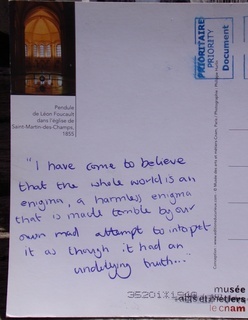 PRIORITAIRE
PRIORITY
Document
Pendule
de Léon Foucault
dans l'église de
Saint-Martin-des-Champs.
1855
"I have come to believe
that the whole world is an
enigma, a harmless enigma
that is made terrible by our
own mad attempt to interpret
it as though it had an
underlying truth..."
musée
arts et métiers
le cnam